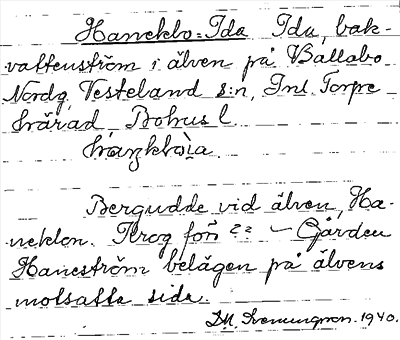 Haneklo-Ida Ida, bak-
vattenström i älven på Ballabo
Nordg, Vesteland s:n, Inl. Torpe
härad, Bohus l.
Bergudde vid älven, Ha-
neklon. Krog förr ?? – Gården
Haneström belägen på älvens
motsatta sida.
1940.